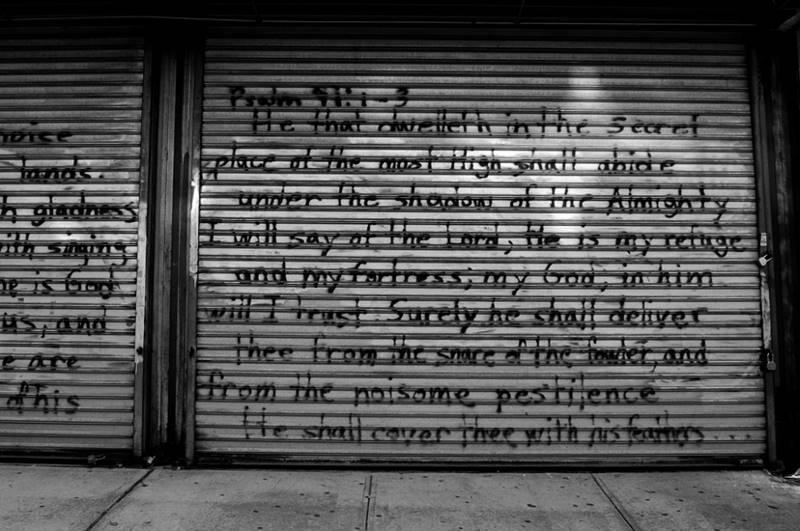 noise
lands.
h gladness
ith singing
he is God
us, and
e are
of His
Psalm 91:1-3
He that dwelleth in the Secret
place of the most High shall abide
under the shadow of the Almighty
I will say of the Lord, He is my refuge
and my fortress; my God; in him
will I trust Surely he shall deliver
thee from the snare of the fowler, and
from the noisome pestilence
He shall cover thee with his feathers...